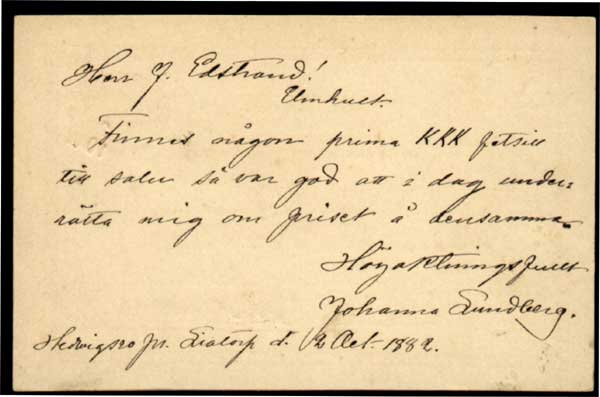 Herr J. Edstrand!
Elmhult.
Finnes någon prima KKK fetsill
till salu så var god att i dag under=
rätta mig om priset å densamma.
Högaktningsfullt
Johanna Lundberg.
Hedvigsro pr. Liatorp d. 2 Oct. 1882.